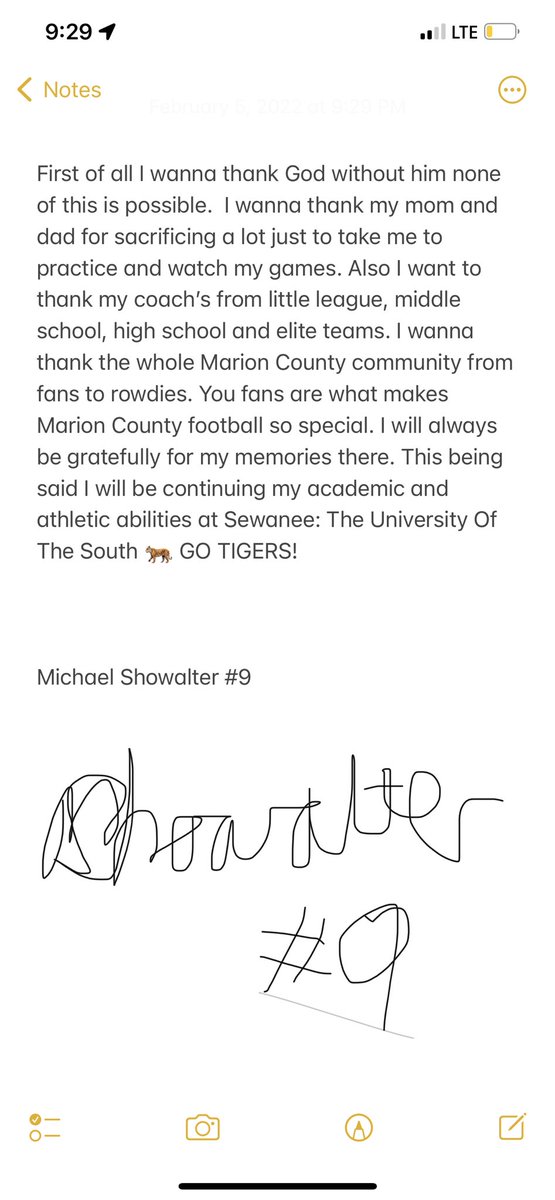 9:29
LTE
Notes
February 5, 2022 at 9:29 PM
First of all I wanna thank God without him none
of this is possible.  I wanna thank my mom and
dad for sacrificing a lot just to take me to
practice and watch my games. Also I want to
thank my coach’s from little league, middle
school, high school and elite teams. I wanna
thank the whole Marion County community from
fans to rowdies. You fans are what makes
Marion County football so special. I will always
be gratefully for my memories there. This being
said I will be continuing my academic and
athletic abilities at Sewanee: The University Of
The South 🐅 GO TIGERS!
Michael Showalter #9
Showalter
#9